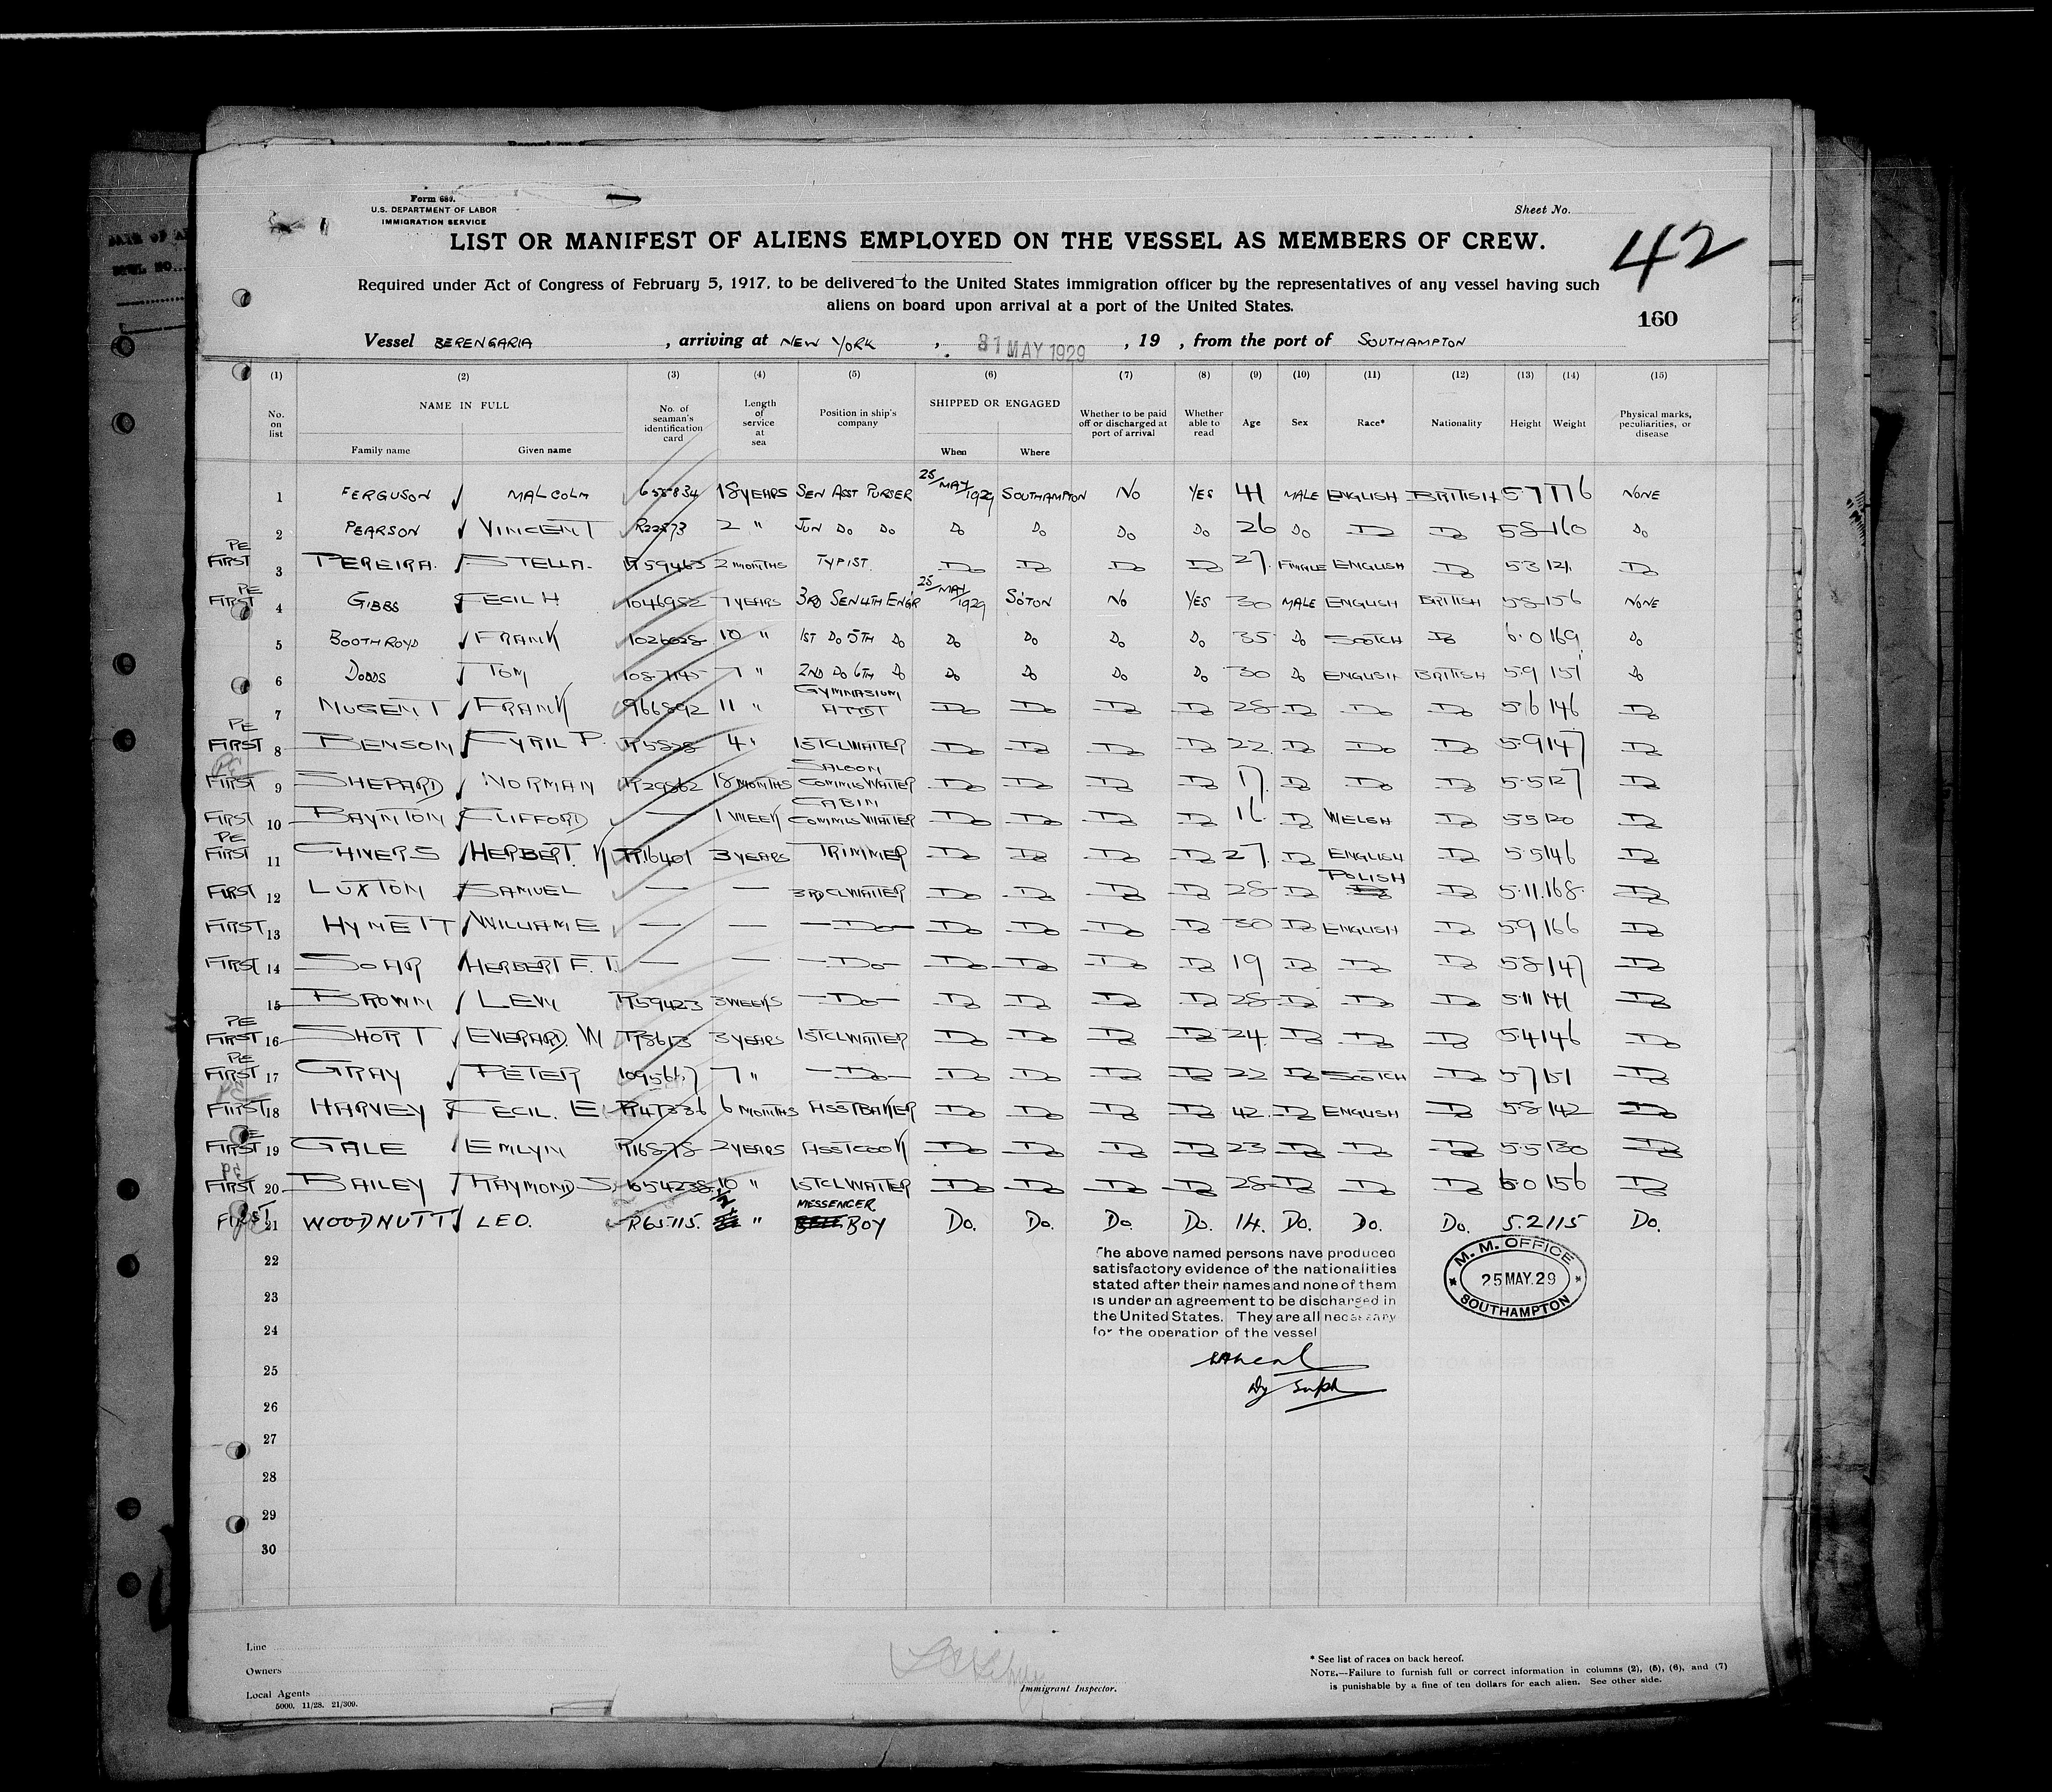 Form 689.
U.S. DEPARTMENT OF LABOR
IMMIGRATION SERVICE
Sheet No.
LIST OR MANIFEST OF ALIENS EMPLOYED ON THE VESSEL AS MEMBERS OF CREW.
42
Required under Act of Congress of February 5, 1917, to be delivered to the United States immigration officer by the representatives of any vessel having such
aliens on board upon arrival at a port of the United States.
160
Vessel BERENGARIA , arriving at NEW YORK , 31 MAY 1929 , 19 , from the port of SOUTHAMPTON
(1) (2) (3) (4) (5) (6) (7) (8) (9) (10) (11) (12) (13) (14) (15)
No. on list NAME IN FULL Family name Given name No. of seaman's identification card Length of service at sea Position in ship's company SHIPPED OR ENGAGED When Where Whether to be paid off or discharged at port of arrival Whether able to read Age Sex Race* Nationality Height Weight Physical marks, peculiarities, or disease
1 FERGUSON MALCOLM 655834 18 YEARS SEN ASST PURSER 25/MAY/1929 SOUTHAMPTON NO YES 41 MALE ENGLISH BRITISH 5-7 176 NONE
2 PEARSON VINCENT R22873 2 " JUN DO DO DO DO DO DO 26 DO DO DO 5-8 160 DO
PE FIRST 3 PEREIRA. STELLA. R59463 2 MONTHS TYPIST. DO DO DO DO 27. FEMALE ENGLISH DO 5-3 121. DO
PE FIRST 4 GIBBS CECIL H 1046952 7 YEARS 3RD SEN 4TH ENGR 25/MAY/1929 SOTON NO YES 30 MALE ENGLISH BRITISH 5-8 156 NONE
5 BOOTHROYD FRANK 1026028 10 " 1ST DO 5TH DO DO DO DO DO 35 DO SCOTCH DO 6.0 169 DO
6 DODDS TOM 1087145 7 " 2ND DO 6TH DO DO DO DO DO 30 DO ENGLISH BRITISH 5.9 151 DO
7 NUGENT FRANK 966892 11 " GYMNASIUM ATTDT DO DO DO DO 28 DO DO DO 5.6 146 DO
PE FIRST 8 BENSON CYRIL P. R5828 4 " 1STCLWAITER DO DO DO DO 22. DO DO DO 5.9 147 DO
PE FIRST 9 SHEPARD NORMAN R29862 18 MONTHS SALOON COMMIS WAITER DO DO DO DO 17. DO DO DO 5.5 127 DO
FIRST 10 BAYNTON CLIFFORD — 1 WEEK CABIN COMMIS WAITER DO DO DO DO 16. DO WELSH DO 5.5 120 DO
PE FIRST 11 CHIVERS HERBERT. W R16401 3 YEARS TRIMMER DO DO DO DO 27. DO ENGLISH DO 5.5 146 DO
FIRST 12 LUXTON SAMUEL — — 3RDCLWAITER DO DO DO DO 28 DO POLISH DO 5.11. 168. DO
FIRST 13 HYNETT WILLIAM E — — DO DO DO DO DO 30 DO ENGLISH DO 5.9 166 DO
FIRST 14 SOAR HERBERT F. T. — — DO DO DO DO DO 19 DO DO DO 5.8 147 DO
15 BROWN LEVI R59423 3 WEEKS DO DO DO DO DO 28 DO DO DO 5.11 141 DO
PE FIRST 16 SHORT EVERARD. W R8613 3 YEARS 1STCLWAITER DO DO DO DO 24. DO DO DO 5.4 146 DO
PE FIRST 17 GRAY PETER 1095667 7 " DO DO DO DO DO 22 DO SCOTCH DO 5.7 151 DO
PE FIRST 18 HARVEY CECIL. E R47336 6 MONTHS ASSTBAKER DO DO DO DO 42. DO ENGLISH DO 5.8 142 DO
PE FIRST 19 GALE EMLYN R16878 2 YEARS ASSTCOOK DO DO DO DO 23 DO DO DO 5.5 130 DO
PE FIRST 20 BAILEY RAYMOND S. 654238 10 " 1STCLWAITER DO DO DO DO 28 DO DO DO 6.0 156 DO
FIRST 21 WOODNUTT LEO. R65115. 1/2 " MESSENGER BOY DO. DO. DO. DO. 14. DO. DO. DO. 5.2 115 DO.
22
23
24
25
26
27
28
29
30
The above named persons have produced
satisfactory evidence of the nationalities
stated after their names and none of them
is under an agreement to be discharged in
the United States. They are all necessary
for the operation of the vessel
Dy Supt
M. M. OFFICE
25 MAY. 29
SOUTHAMPTON
Line
Owners
Local Agents
5000. 11/28. 21/309.
Immigrant Inspector.
* See list of races on back hereof.
NOTE.—Failure to furnish full or correct information in columns (2), (5), (6), and (7)
is punishable by a fine of ten dollars for each alien. See other side.